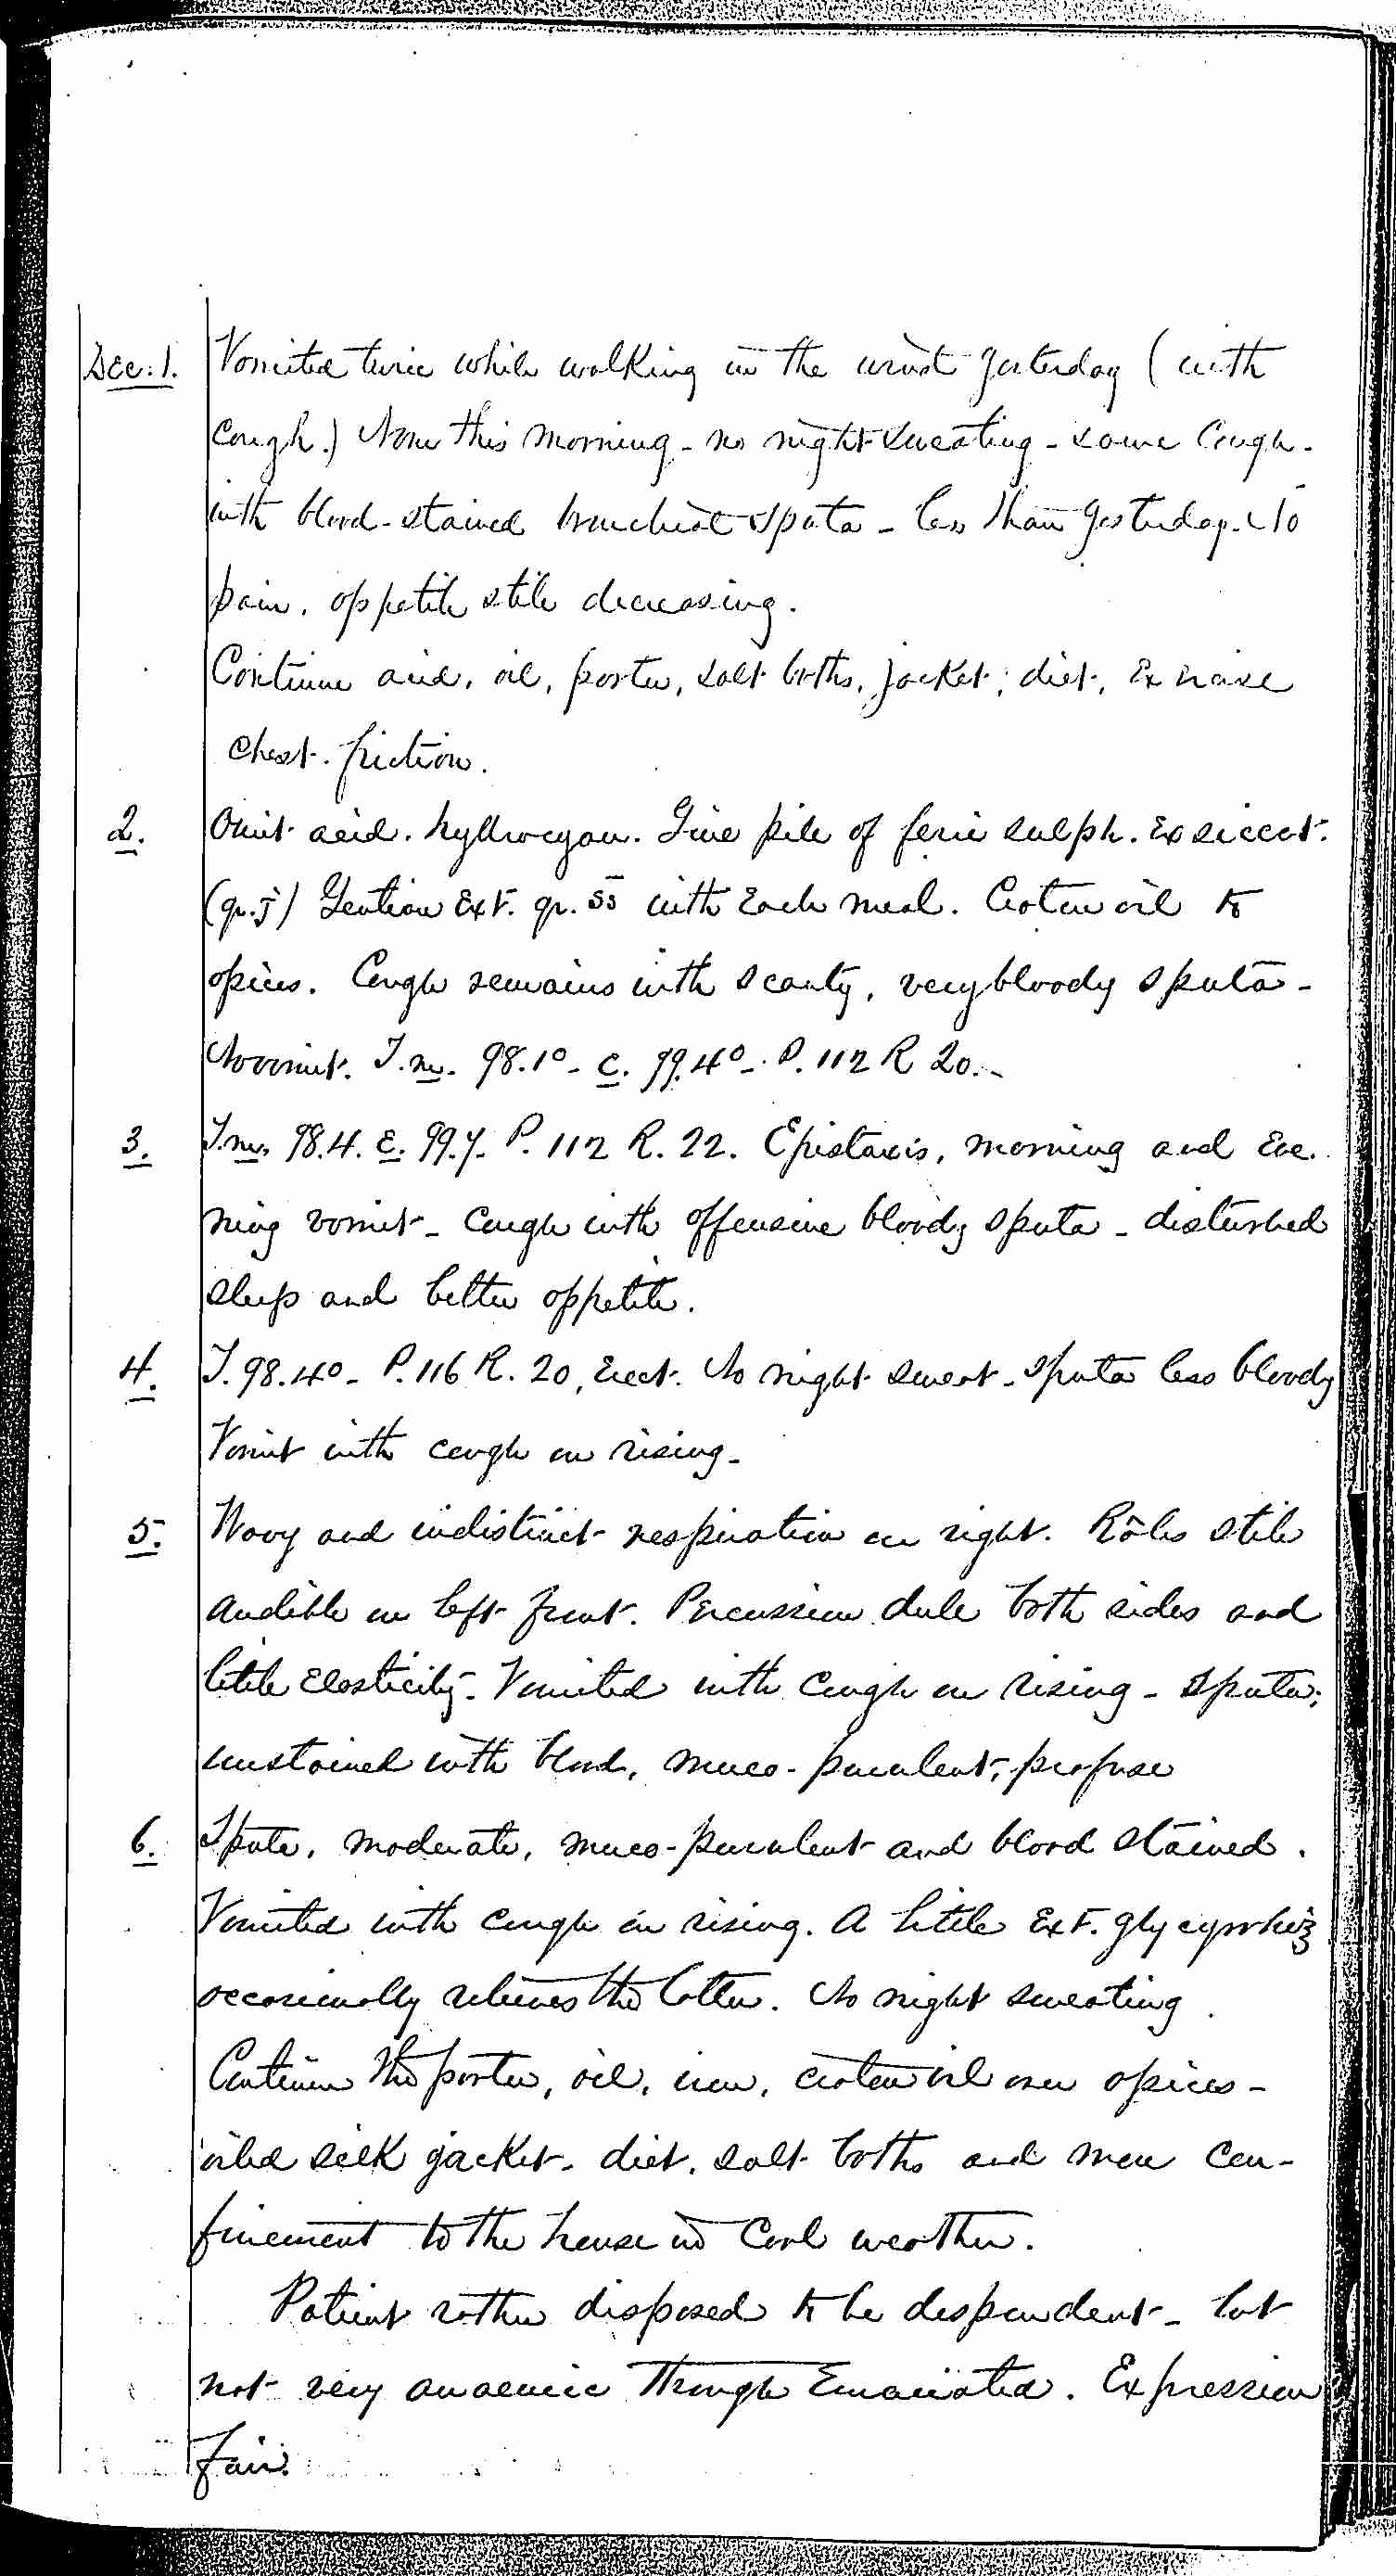 Dec. 1. Vomited twice while walking in the wind yesterday (with
cough.) None this morning - no night sweating - some cough -
with blood-stained bronchial sputa - less than yesterday. No
pain, appetite still decreasing.
Continue acid, oil, porter, salt baths, jacket, diet, exercise
chest-friction.
2. Omit acid. hydrocyan. Give pill of ferri sulph. exsiccat.
(gr. j) Gentian Ext. gr. ss with each meal. Croton oil to
apices. Cough remains with scanty, very bloody sputa -
No vomit. T. m. 98.1° - e. 99.4° - P. 112 R 20. -
3. T. m. 98.4. e. 99.7. P. 112 R. 22. Epistaxis, morning and eve-
ning vomit - cough with offensive bloody sputa - disturbed
sleep and better appetite.
4. T. 98.4° - P. 116 R. 20, erect. No night sweat - sputa less bloody
Vomit with cough on rising -
5. Wavy and indistinct respiration on right. Râles still
audible on left front. Percussion dull both sides and
little elasticity - Vomited with cough on rising - Sputa;
unstained with blood, muco-purulent, profuse
6. Sputa, moderate, muco-purulent and blood stained.
Vomited with cough on rising. A little Ext. glycyrrhiz
occasionally relieves the latter. No night sweating.
Continue the porter, oil, iron, croton oil over apices -
oiled silk jacket - diet, salt baths and more con-
finement to the house in cool weather.
Patient rather disposed to be despondent - but
not very anaemic though emaciated. Expression
fair.